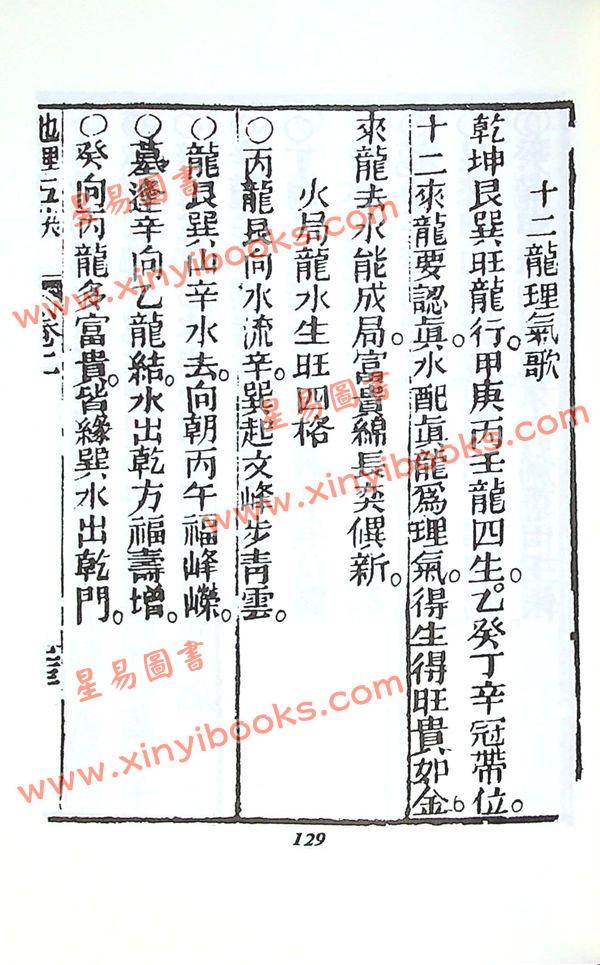 十二龍理氣歌
乾坤艮巽旺龍行。甲庚丙壬龍四生。乙癸丁辛冠帶位。
十二來龍要認眞。水配眞龍爲理氣。得生得旺貴如金。
來龍去水能成局。富貴綿長奕禩新。
火局龍水生旺四格
○丙龍艮向水流辛。巽起文峰步青雲。
○龍艮巽山辛水去。向朝丙午福峰嶸。
○墓逢辛向乙龍結。水出乾方福壽增。
○癸向丙龍多富貴。皆緣巽水出乾門。
地理五訣 卷二
129
星易圖書
www.xinyibooks.com
星易圖書
www.xinyibooks.com
星易圖書
www.xinyibooks.com